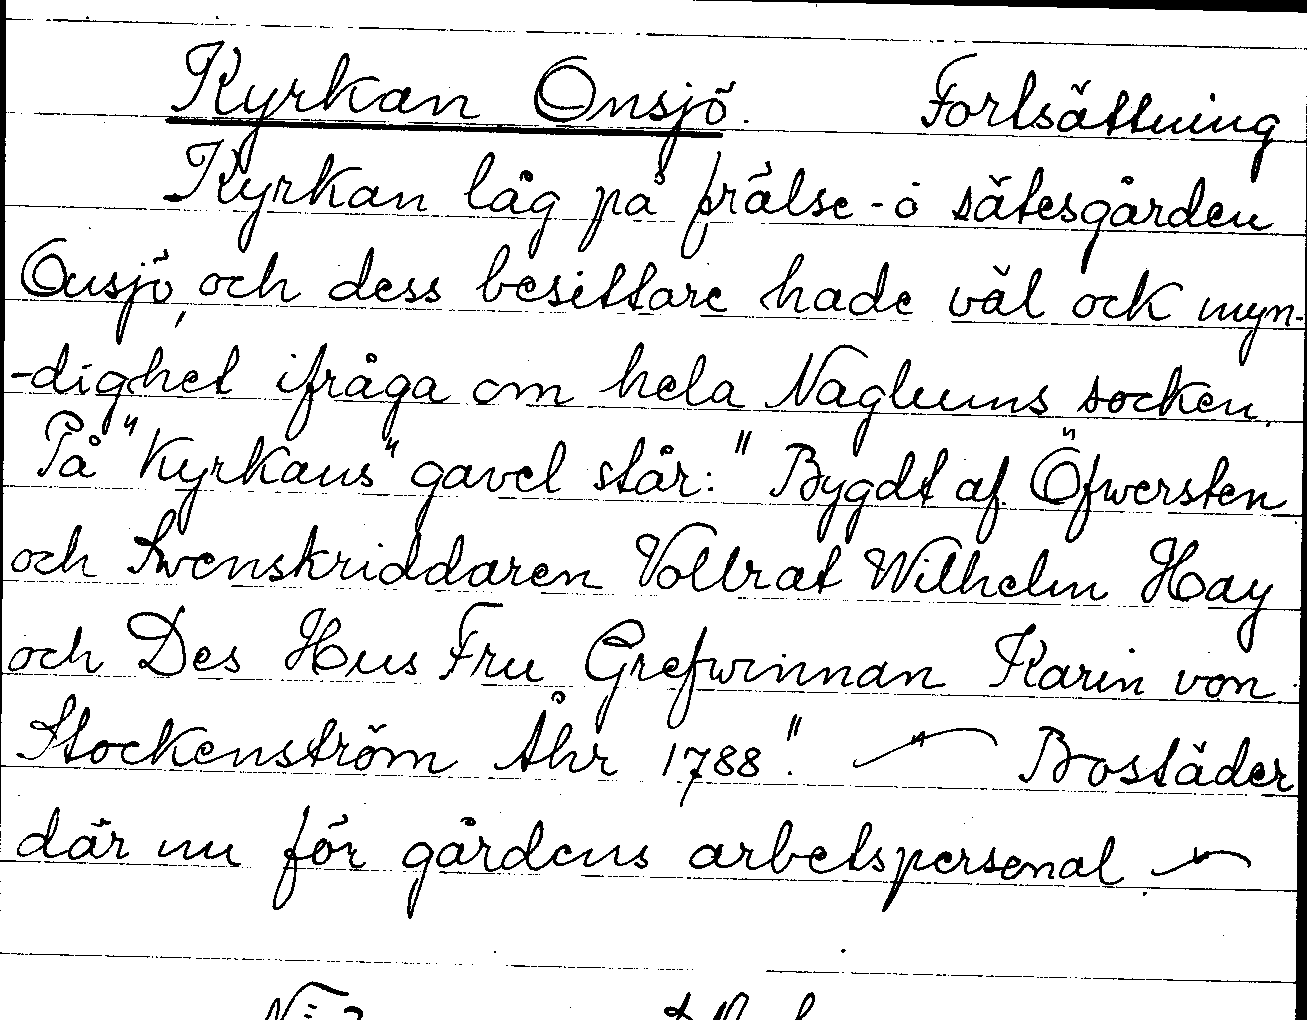 Kyrkan Onsjö. Fortsättning
Kyrkan låg på frälse-ö sätesgården
Onsjö, och dess besittare hade väl ock myn-
-dighet ifråga om hela Naglums socken.
På "Kyrkans" gavel står: "Bygdt af Öfwersten
och Swenskriddaren Vollrat Wilhelm Hay
och Des Hus Fru Grefwinnan Karin von
Stockenström Åhr 1788". Bostäder
där nu för gårdens arbetspersonal